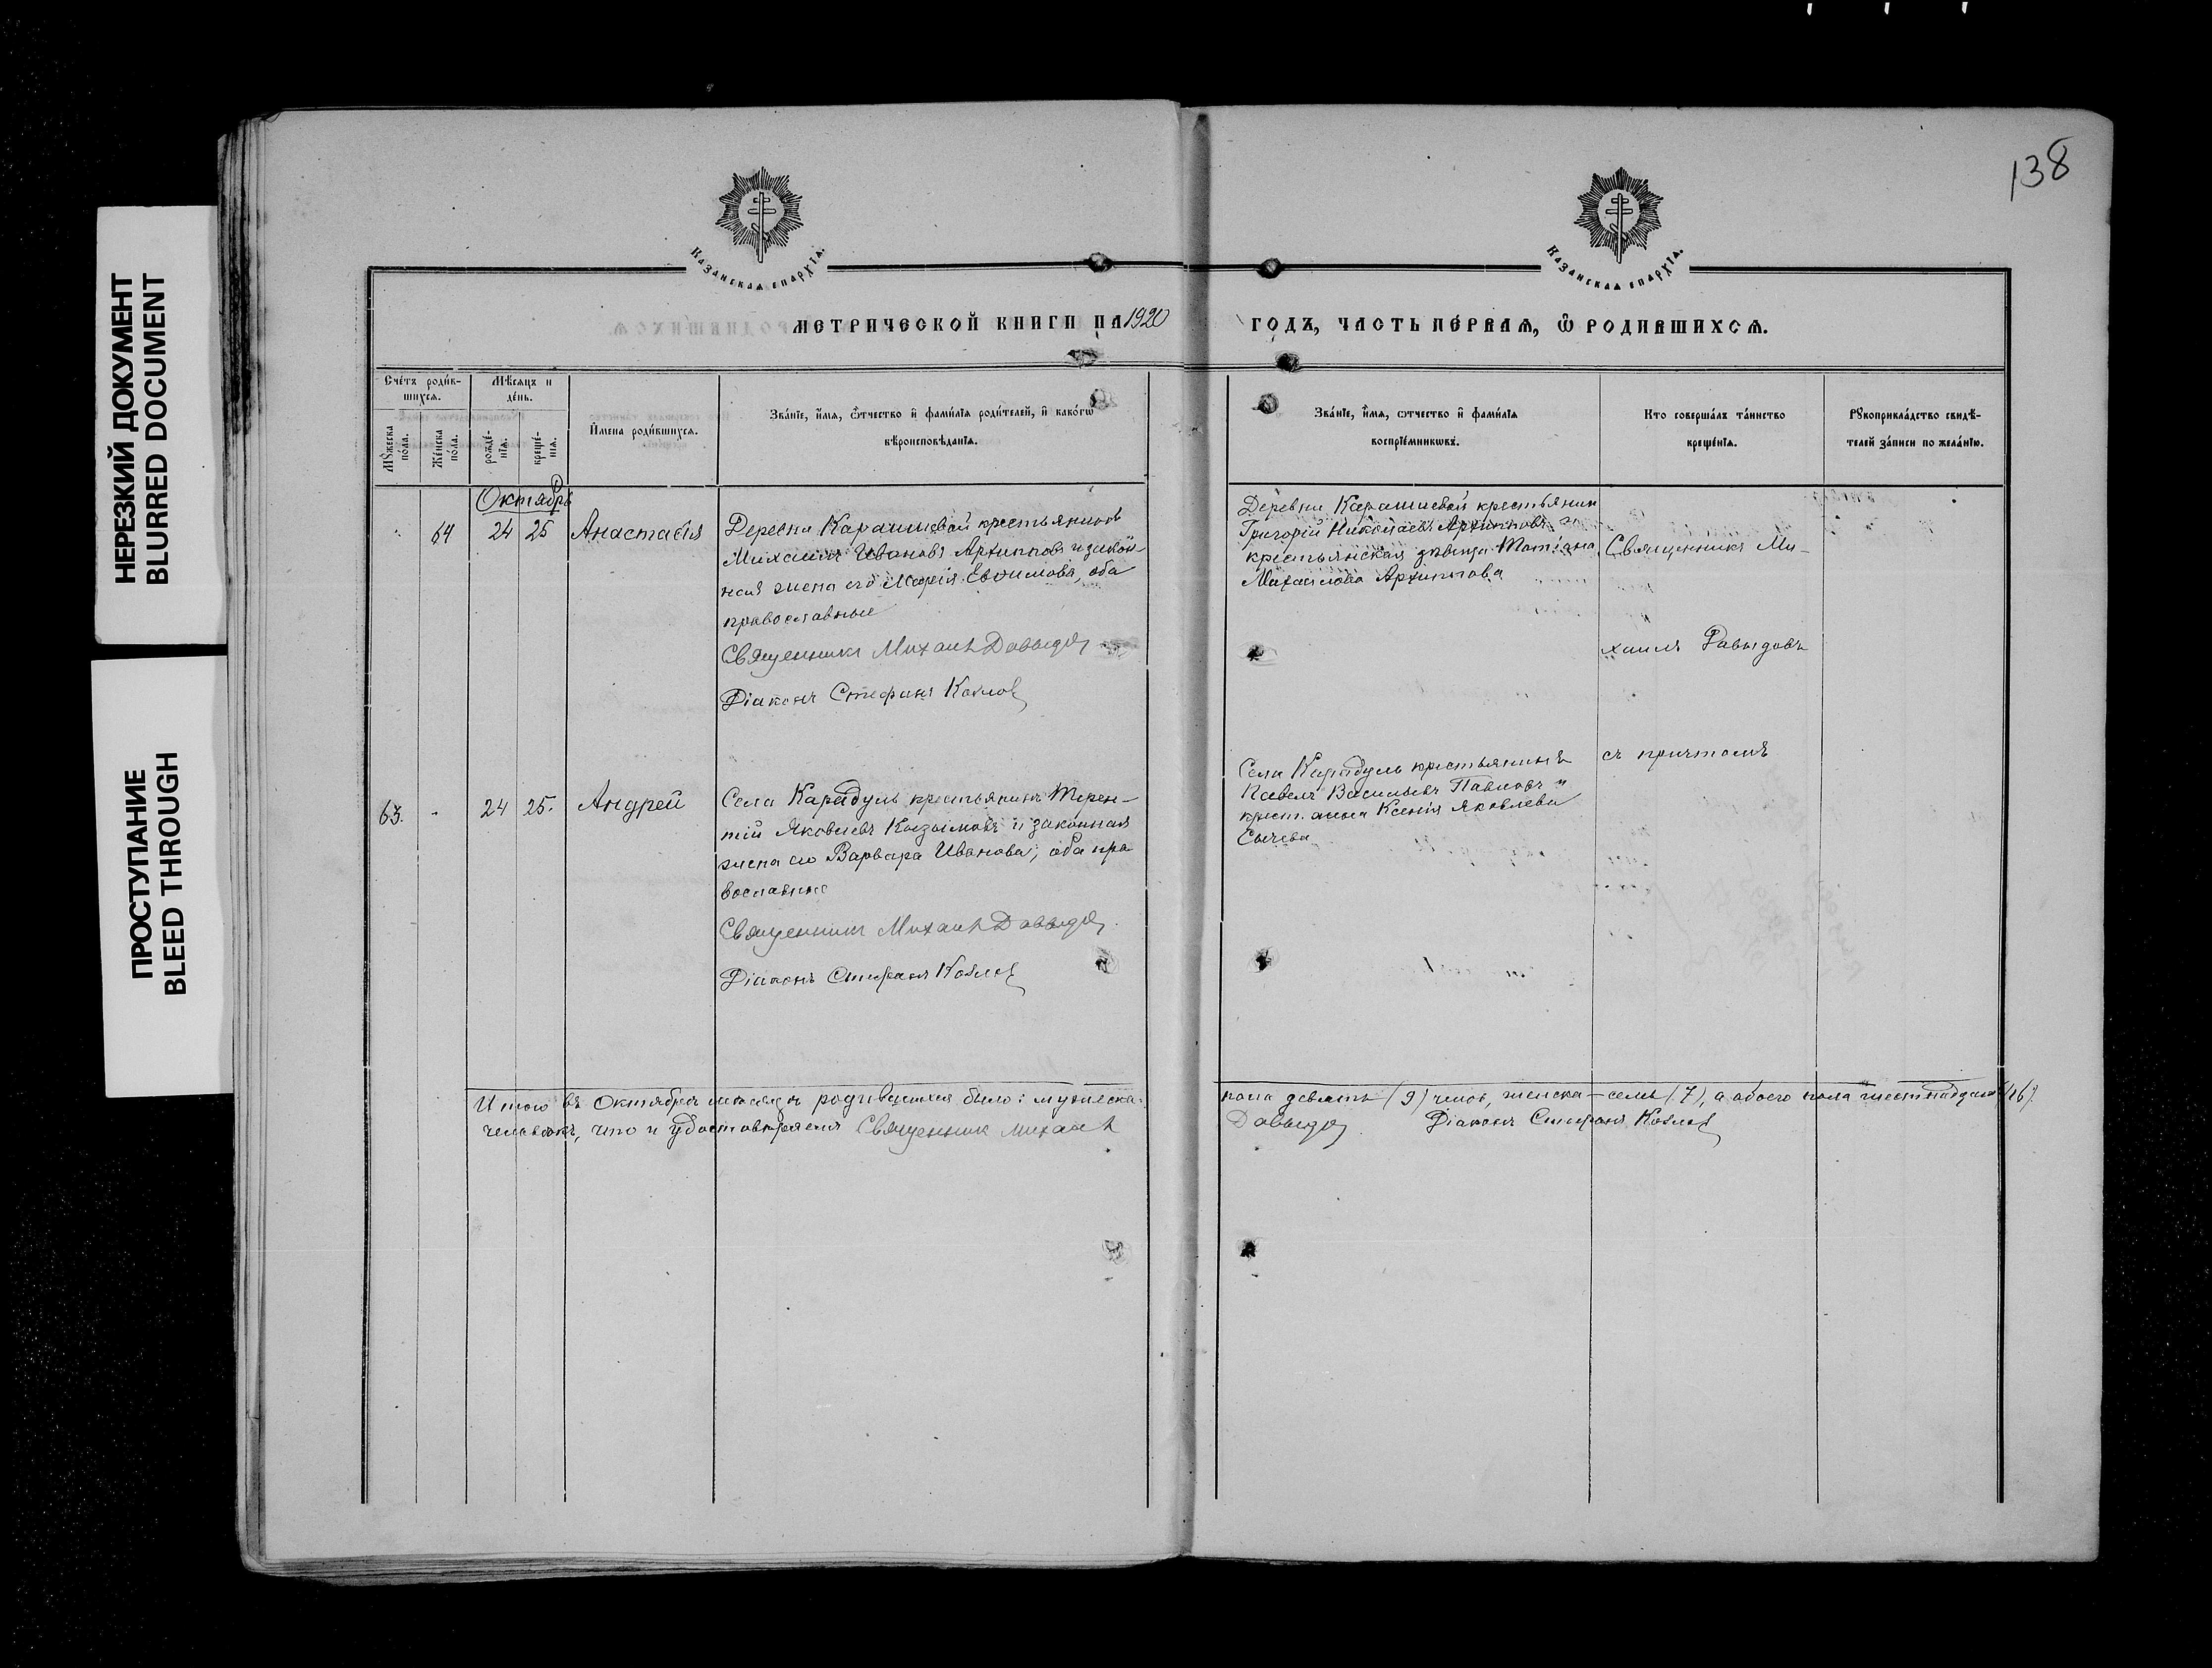 138
НЕРЕЗКИЙ ДОКУМЕНТ
BLURRED DOCUMENT
ПРОСТУПАНИЕ
BLEED THROUGH
Казанская епархїѧ.
Казанская епархїѧ.
МЕТРИЧЕСКОЙ КНИГИ НА 1920
ГОДЪ, ЧАСТЬ ПЕ́РВАѦ, Ѡ҆ РОДИВШИХСѦ.
Сче́тъ роди́в-
шихсѧ.
Мѣ́сѧцъ и
де́нь.
Мꙋ́жеска
по́ла.
Же́нска
по́ла.
рожде́-
нїѧ.
креще́-
нїѧ.
И҆мена роди́вшихсѧ.
Зва́нїе, и҆́мѧ, ѻ҆́тчество и҆ фами́лїѧ роди́телей, и҆ како́гѡ
вѣроисповѣ́данїѧ.
Зва́нїе, и҆́мѧ, ѻ҆́тчество и҆ фами́лїѧ
воспрїе́мникѡвъ.
Кто соверша́лъ та́инство
креще́нїѧ.
Рꙋкоприкла́дство свидѣ́-
телей за́писи по жела́нїю.
Октябрь
64 24 25 Анастасія
Деревни Карашевой крестьянинъ
Михаилъ Ивановъ Архиповъ и закон-
ная жена его Марія Евѳимова, оба
православные
Священникъ Михаил Давыдов
Діаконъ Стефанъ Козлов
Деревни Карашевой крестьянин
Григорій Николаевъ Архиповъ и
крестьянская дѣвица Татіана
Михаилова Архипова
Священникъ Ми-
хаилъ Давыдовъ
съ причтомъ
63. 24 25. Андрей
Села Карадуль крестьянинъ Терен-
тій Яковлевъ Козымовъ и законная
жена его Варвара Иванова, оба пра
вославные
Священникъ Михаил Давыдов
Діаконъ Стефанъ Козлов
Села Карадуль крестьянинъ
Павелъ Васильевъ Павловъ и
крест. Ксенія Яковлева
Сычева
Итого въ Октябрѣ мѣсяцѣ родившихся было: мужеска
пола девять (9) челов, женска – семь (7), а обоего пола шестнадцать (16)
человѣкъ, что и удостовѣряемъ Священник Михаил
Давыдов Діаконъ Стефанъ Козлов